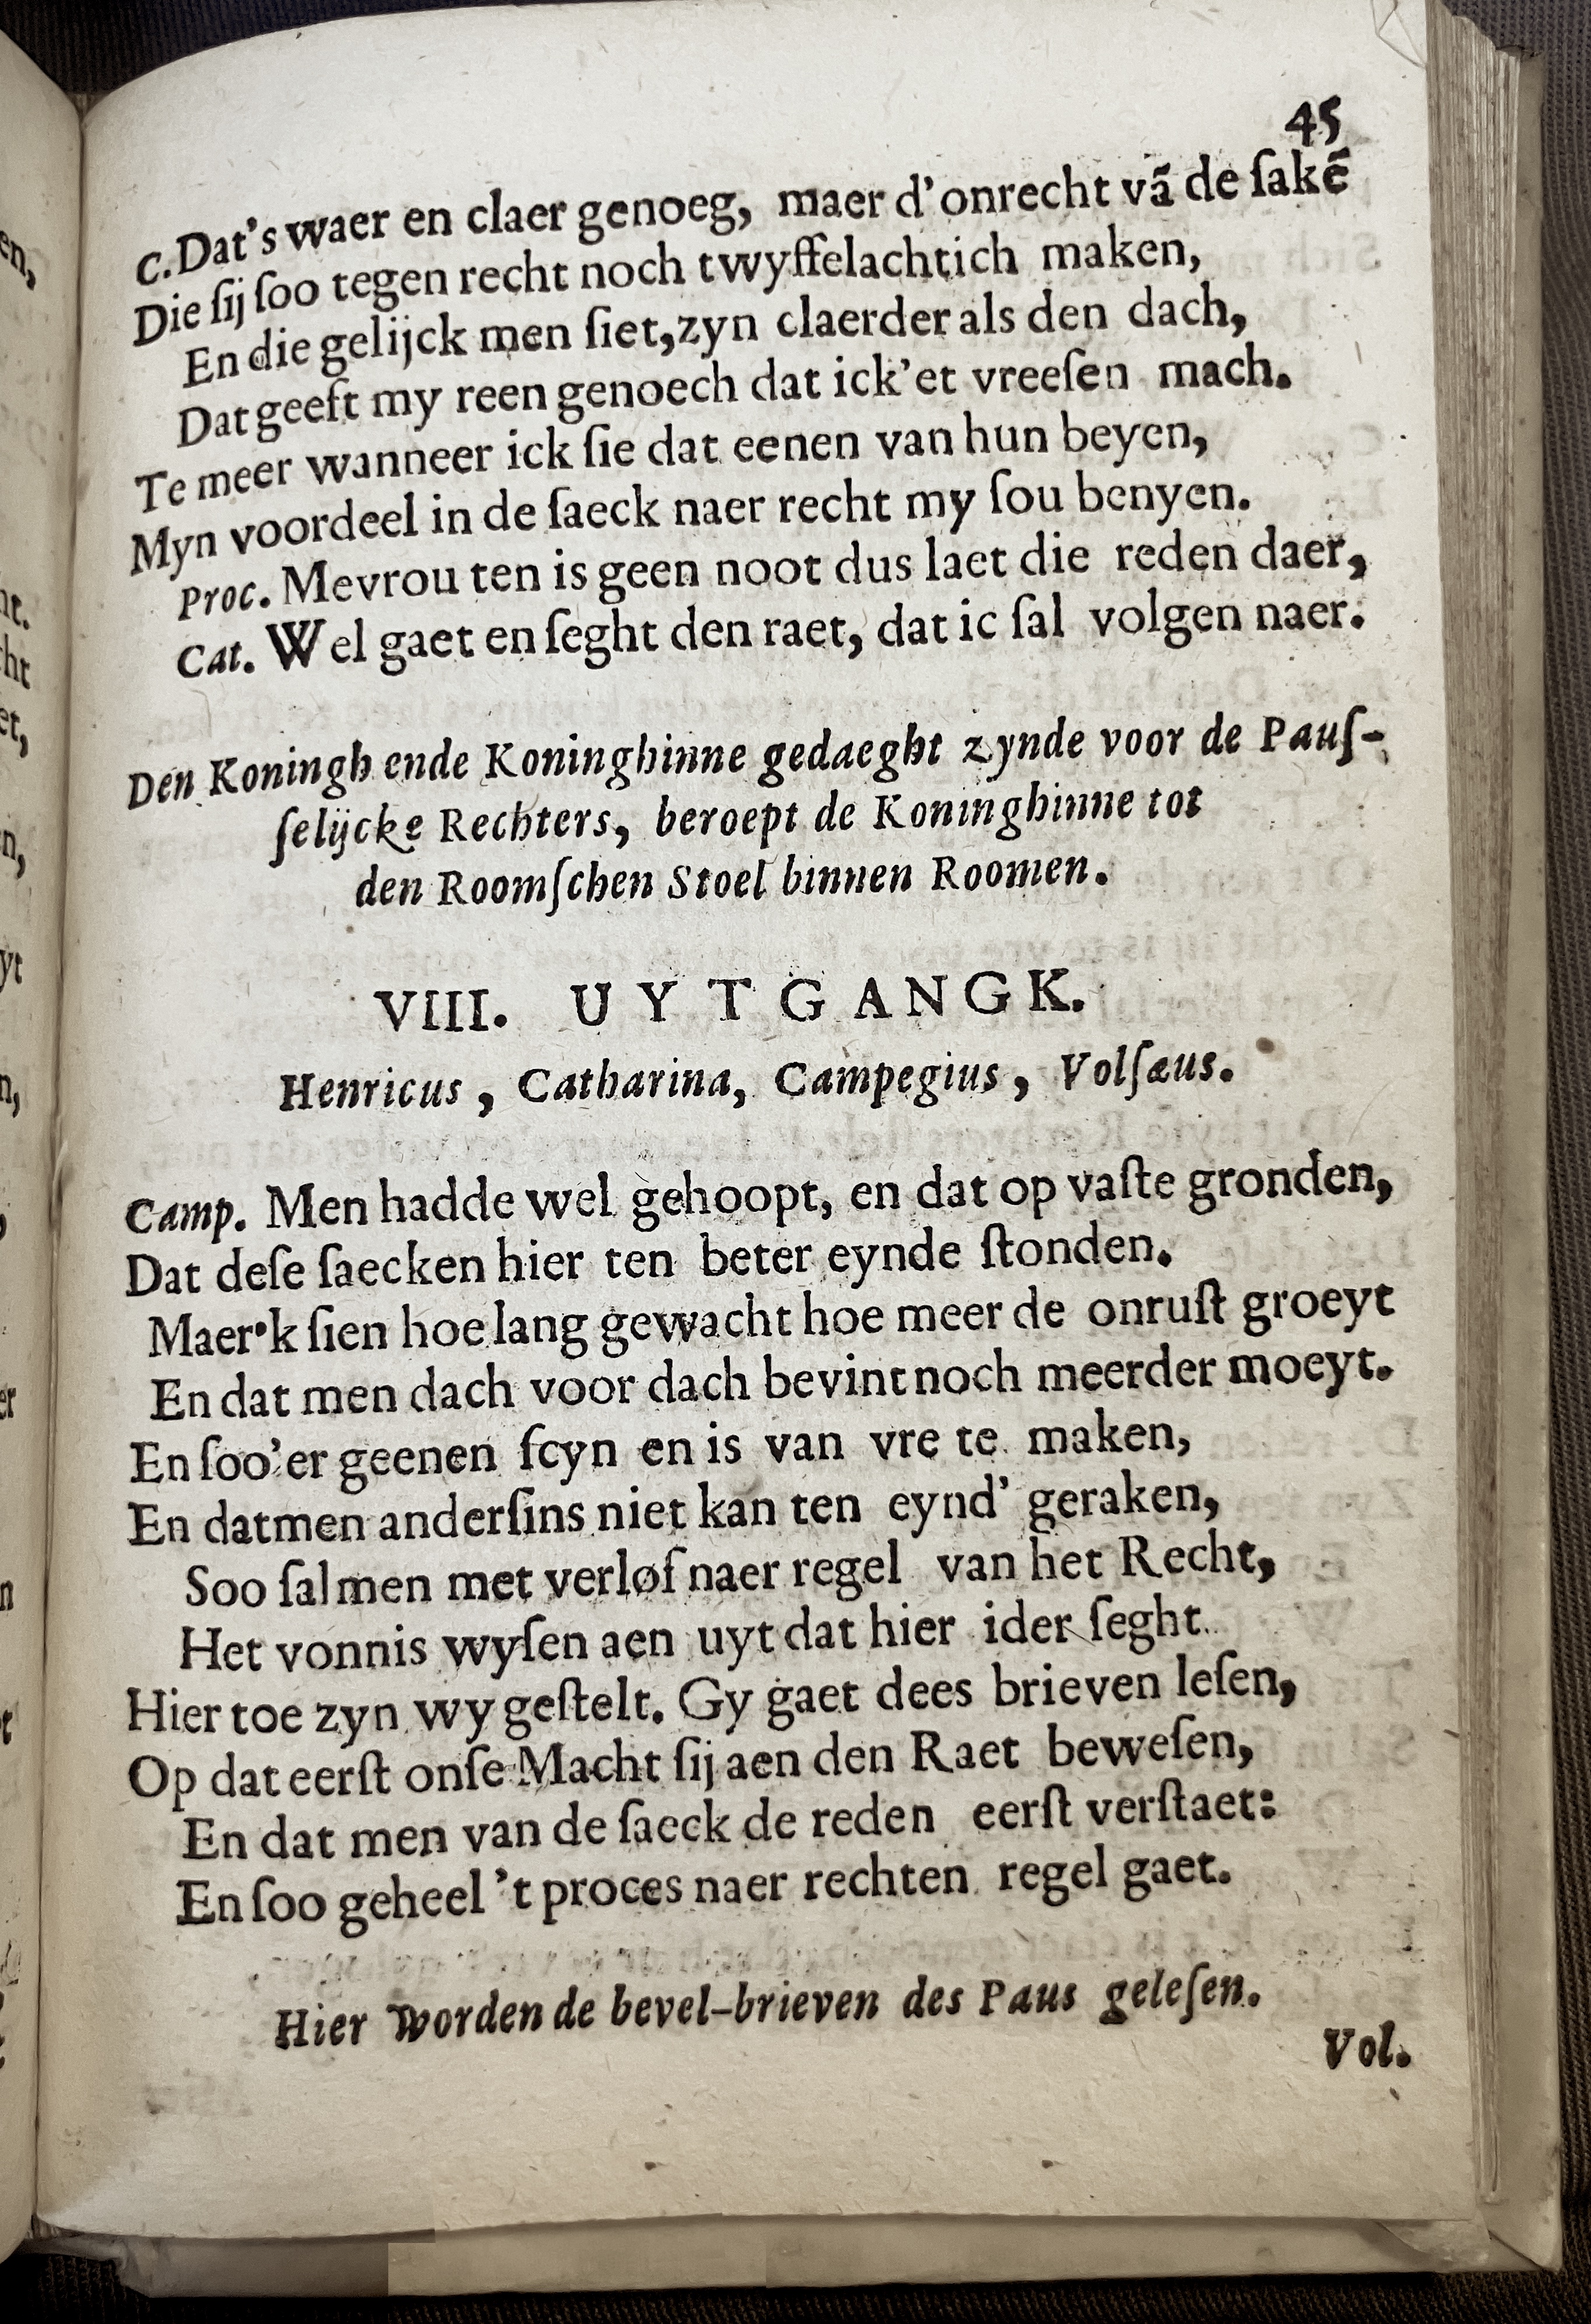 45
C. Dat's waer en claer genoeg, maer d'onrecht vã de ſakẽ
Die ſij ſoo tegen recht noch twyffelachtich maken,
En die gelijck men ſiet, zyn claerder als den dach,
Dat geeft my reen genoech dat ick'et vreeſen mach.
Te meer wanneer ick ſie dat eenen van hun beyen,
Myn voordeel in de ſaeck naer recht my ſou benyen.
Proc. Mevrou ten is geen noot dus laet die reden daer,
Cat. Wel gaet en ſeght den raet, dat ic ſal volgen naer.
Den Koningh ende Koninghinne gedaeght zynde voor de Pauſ-
ſelijcke Rechters, beroept de Koninghinne tot
den Roomſchen Stoel binnen Roomen.
VIII. UYTGANGK.
Henricus, Catharina, Campegius, Volſæus.
Camp. Men hadde wel gehoopt, en dat op vaſte gronden,
Dat deſe ſaecken hier ten beter eynde ſtonden.
Maer'k ſien hoe lang gewacht hoe meer de onruſt groeyt
En dat men dach voor dach bevint noch meerder moeyt.
En ſoo'er geenen ſcyn en is van vre te maken,
En datmen anderſins niet kan ten eynd' geraken,
Soo ſal men met verlof naer regel van het Recht,
Het vonnis wyſen aen uyt dat hier ider ſeght.
Hier toe zyn wy geſtelt. Gy gaet dees brieven leſen,
Op dat eerſt onſe Macht ſij aen den Raet beweſen,
En dat men van de ſaeck de reden eerſt verſtaet:
En ſoo geheel 't proces naer rechten regel gaet.
Hier worden de bevel-brieven des Paus geleſen.
Vol.